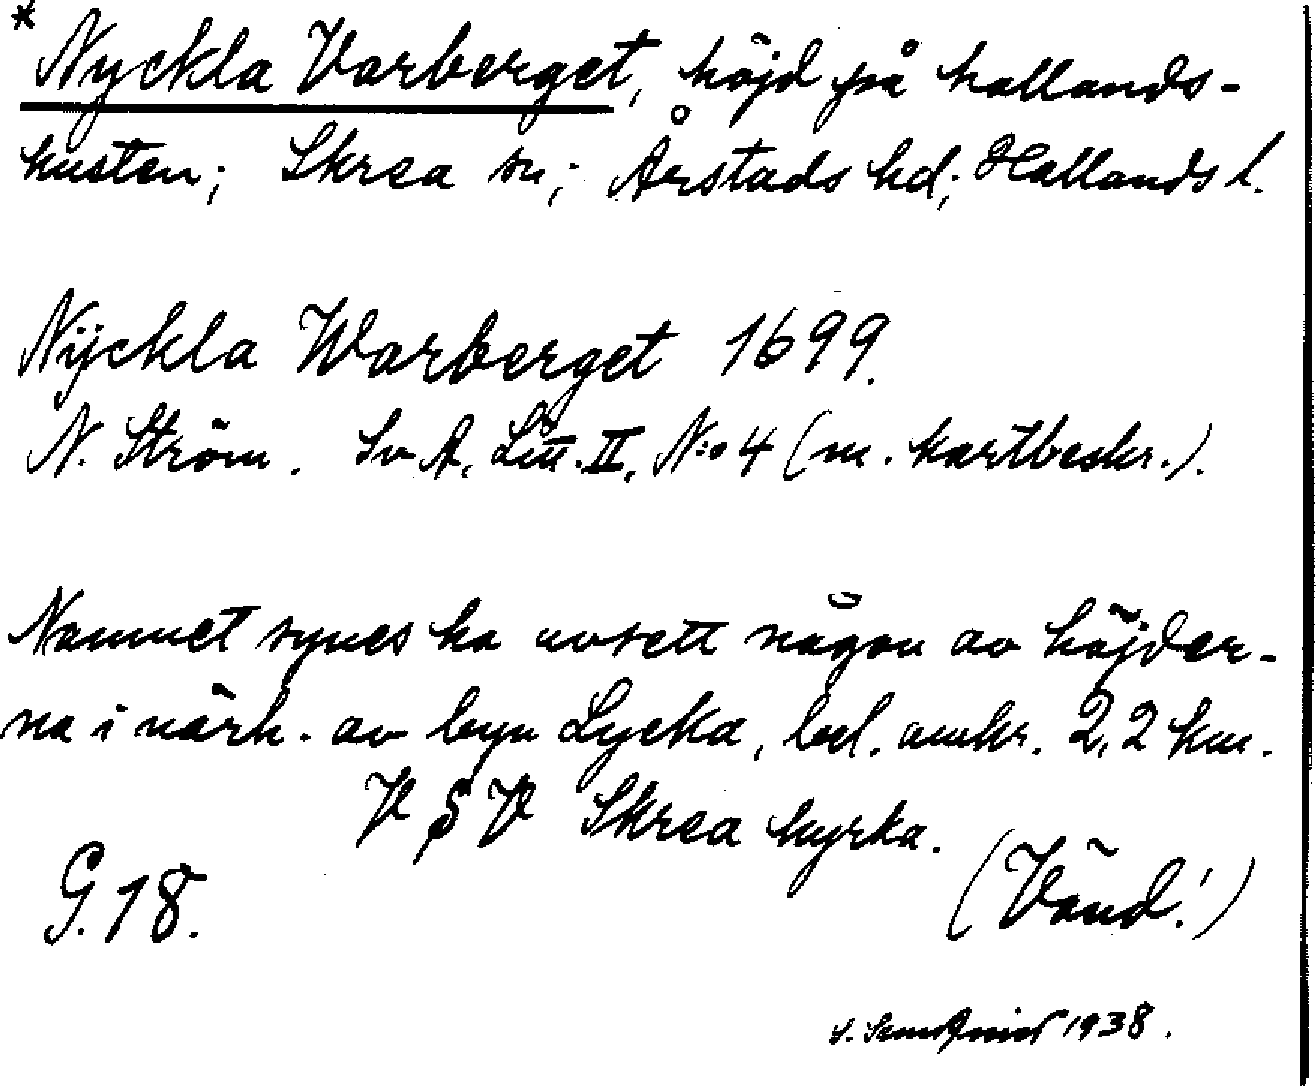 * Nyckla Varberget, höjd på hallands-
kusten; Skrea sn; Årstads hd; Hallands l.
Nÿckla Warberget 1699.
N. Ström. Sv A, Litt. II, N:o 4 (m. kartbeskr.).
Namnet synes ha avsett någon av höjder-
na i närh. av byn Lycka, bel. omkr. 2,2 km.
V § V Skrea kyrka.
G. 18.
(Vänd!)
1938.